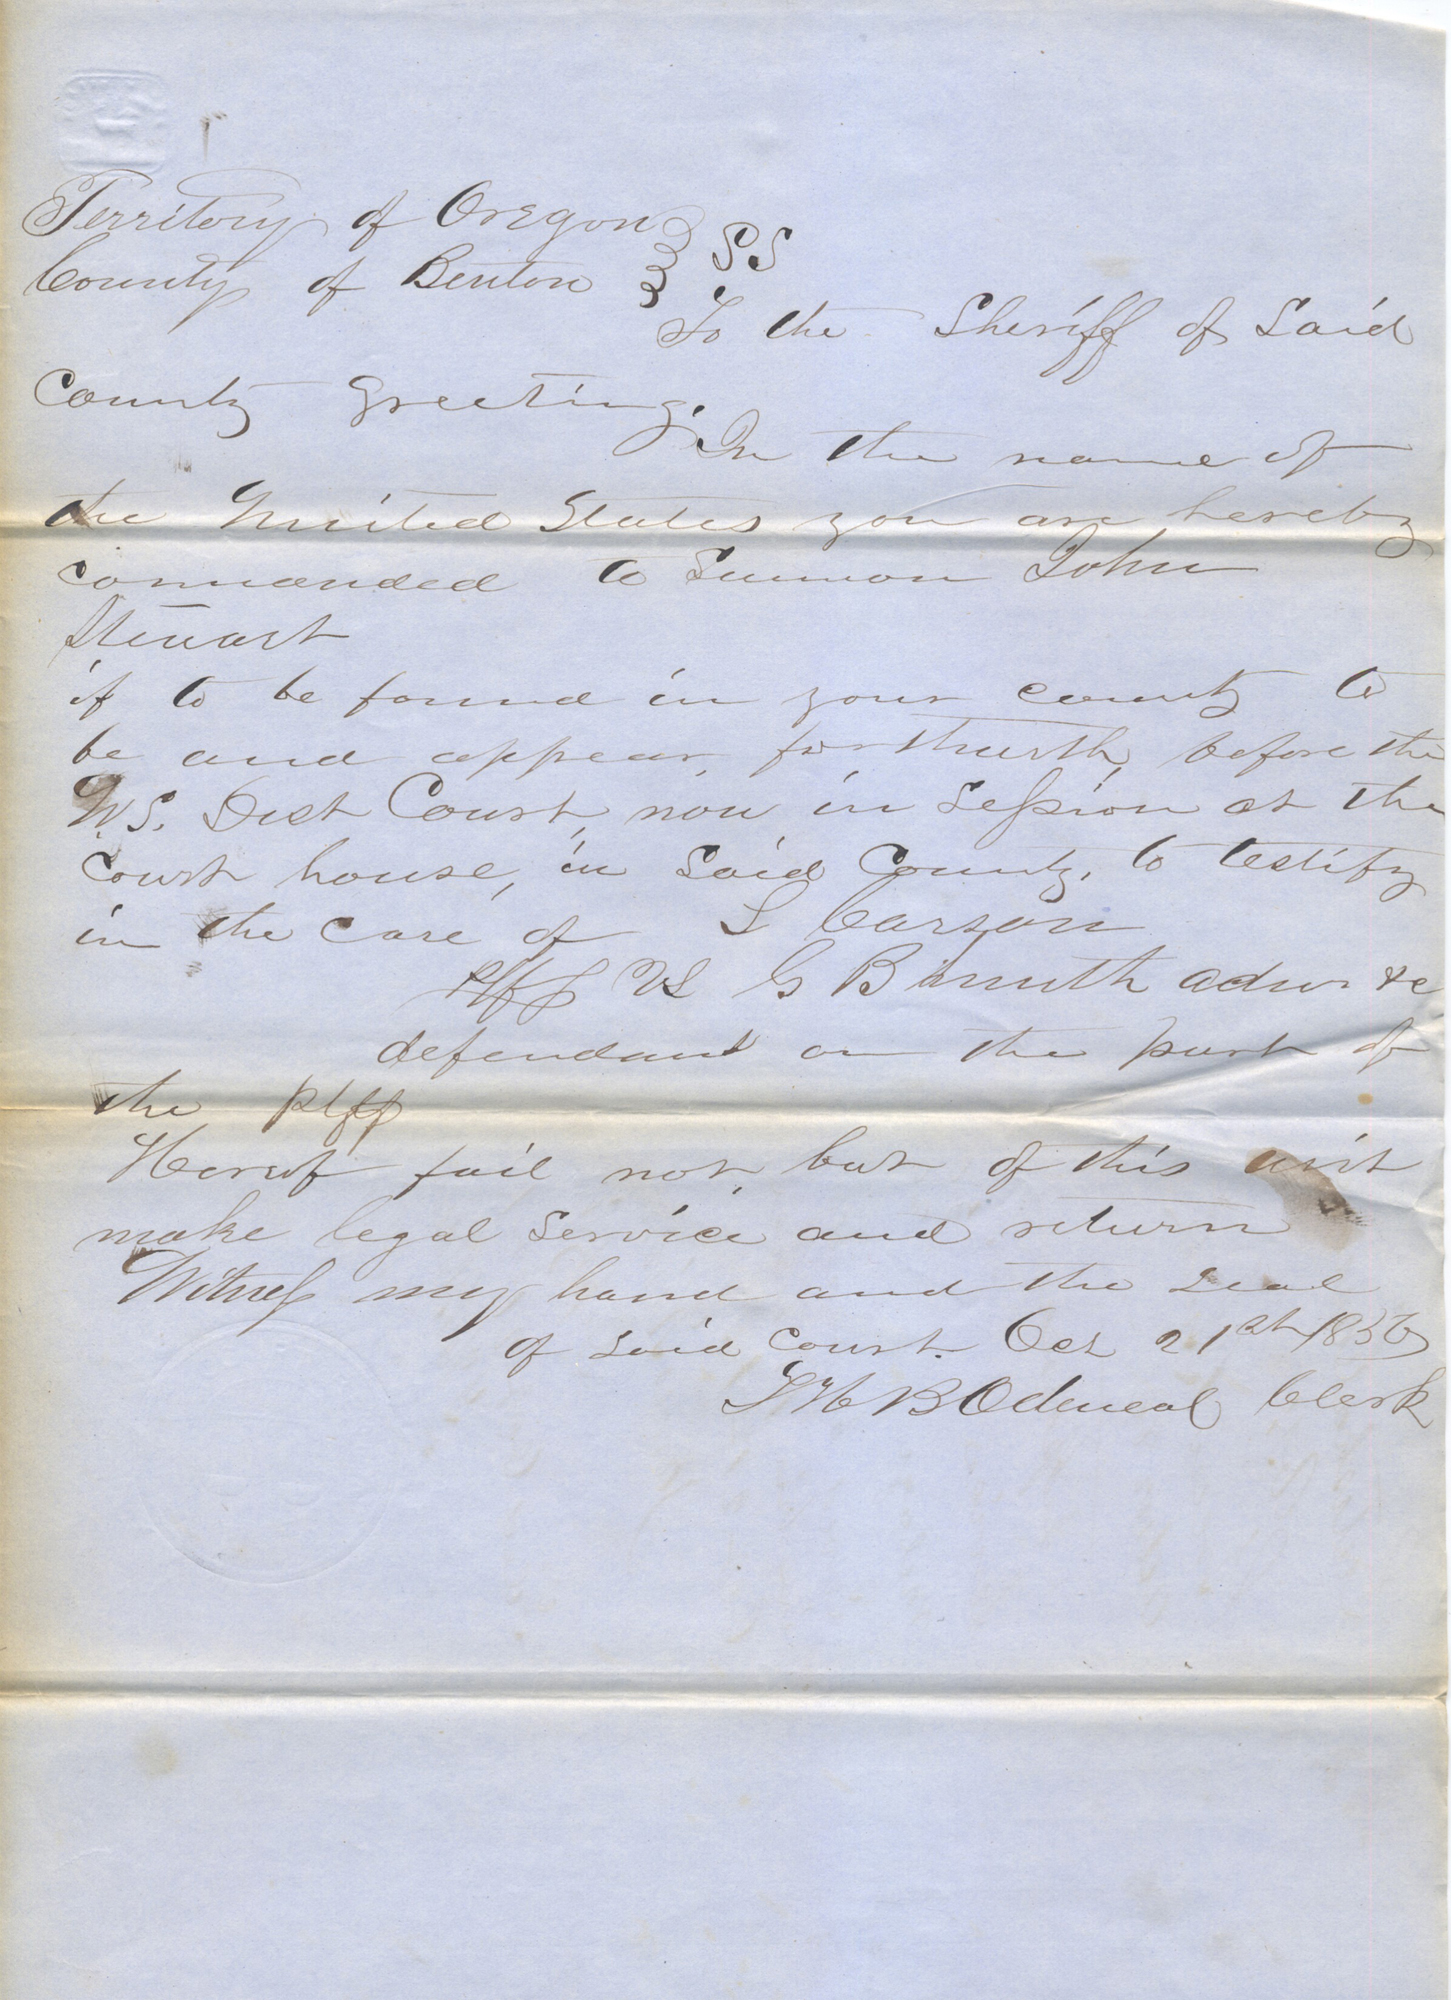 Territory of Oregon } SS
County of Benton }
To the Sheriff of Said
County Greeting,
In the name of
the United States you are hereby
commanded to Summon John
Stewart
if to be found in your county to
be and appear, forthwith, before the
U.S. Dist Court, now in Session at the
Court house, in Said County, to testify
in the case of L Carson
Plff vs G B Smith admr &c
defendant on the part of
the plff
Hereof fail not, but of this writ
make legal service and return
Witness my hand and the seal
of said court. Oct 21st 1856
T B Odeneal Clerk